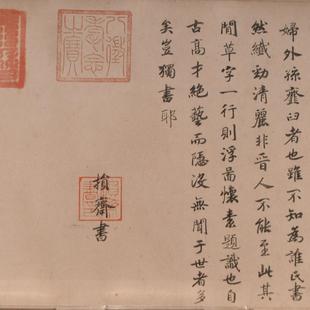 婦外孫齏臼者也雖不知為誰氏書
然纖勁清麗非晉人不能至此其
間草字一行則浮啚懷素題識也自
古高才絕藝而隱沒無聞于世者多
矣豈獨書耶
損齋書